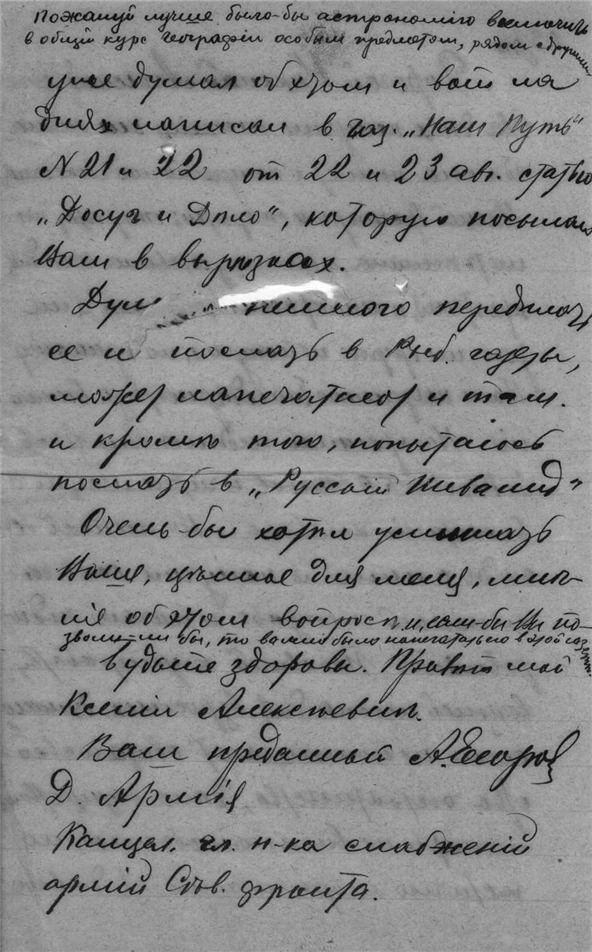 Пожалуй лучше было-бы астрономію включить
в общій курс географіи особым предметом, рядом с другими
уже думал об этом и вот на
днях написал в газ. „Наш Путь"
N 21 и 22 от 22 и 23 авг. статью
„Досуг и Дѣло", которую посылаю
Вам в вырѣзках.
немного передѣлать
ее и послать в Рыб. газеты,
может напечатают и там.
и кромѣ того, попытаюсь
послать в „Русскій Инвалид"
Очень-бы хотѣл услышать
Ваше, цѣнное для меня, мнѣ-
ніе об этом вопросѣ, и, если-бы Вы по-
зволили бы, то важно было напечатать его в этой газ.
Будьте здоровы. Привѣт мой
Ксеніи Алексѣевнѣ.
Ваш преданный А. Егоров
Д. Армія
Канцел. гл. н-ка снабженій
армій Сѣв. фронта.